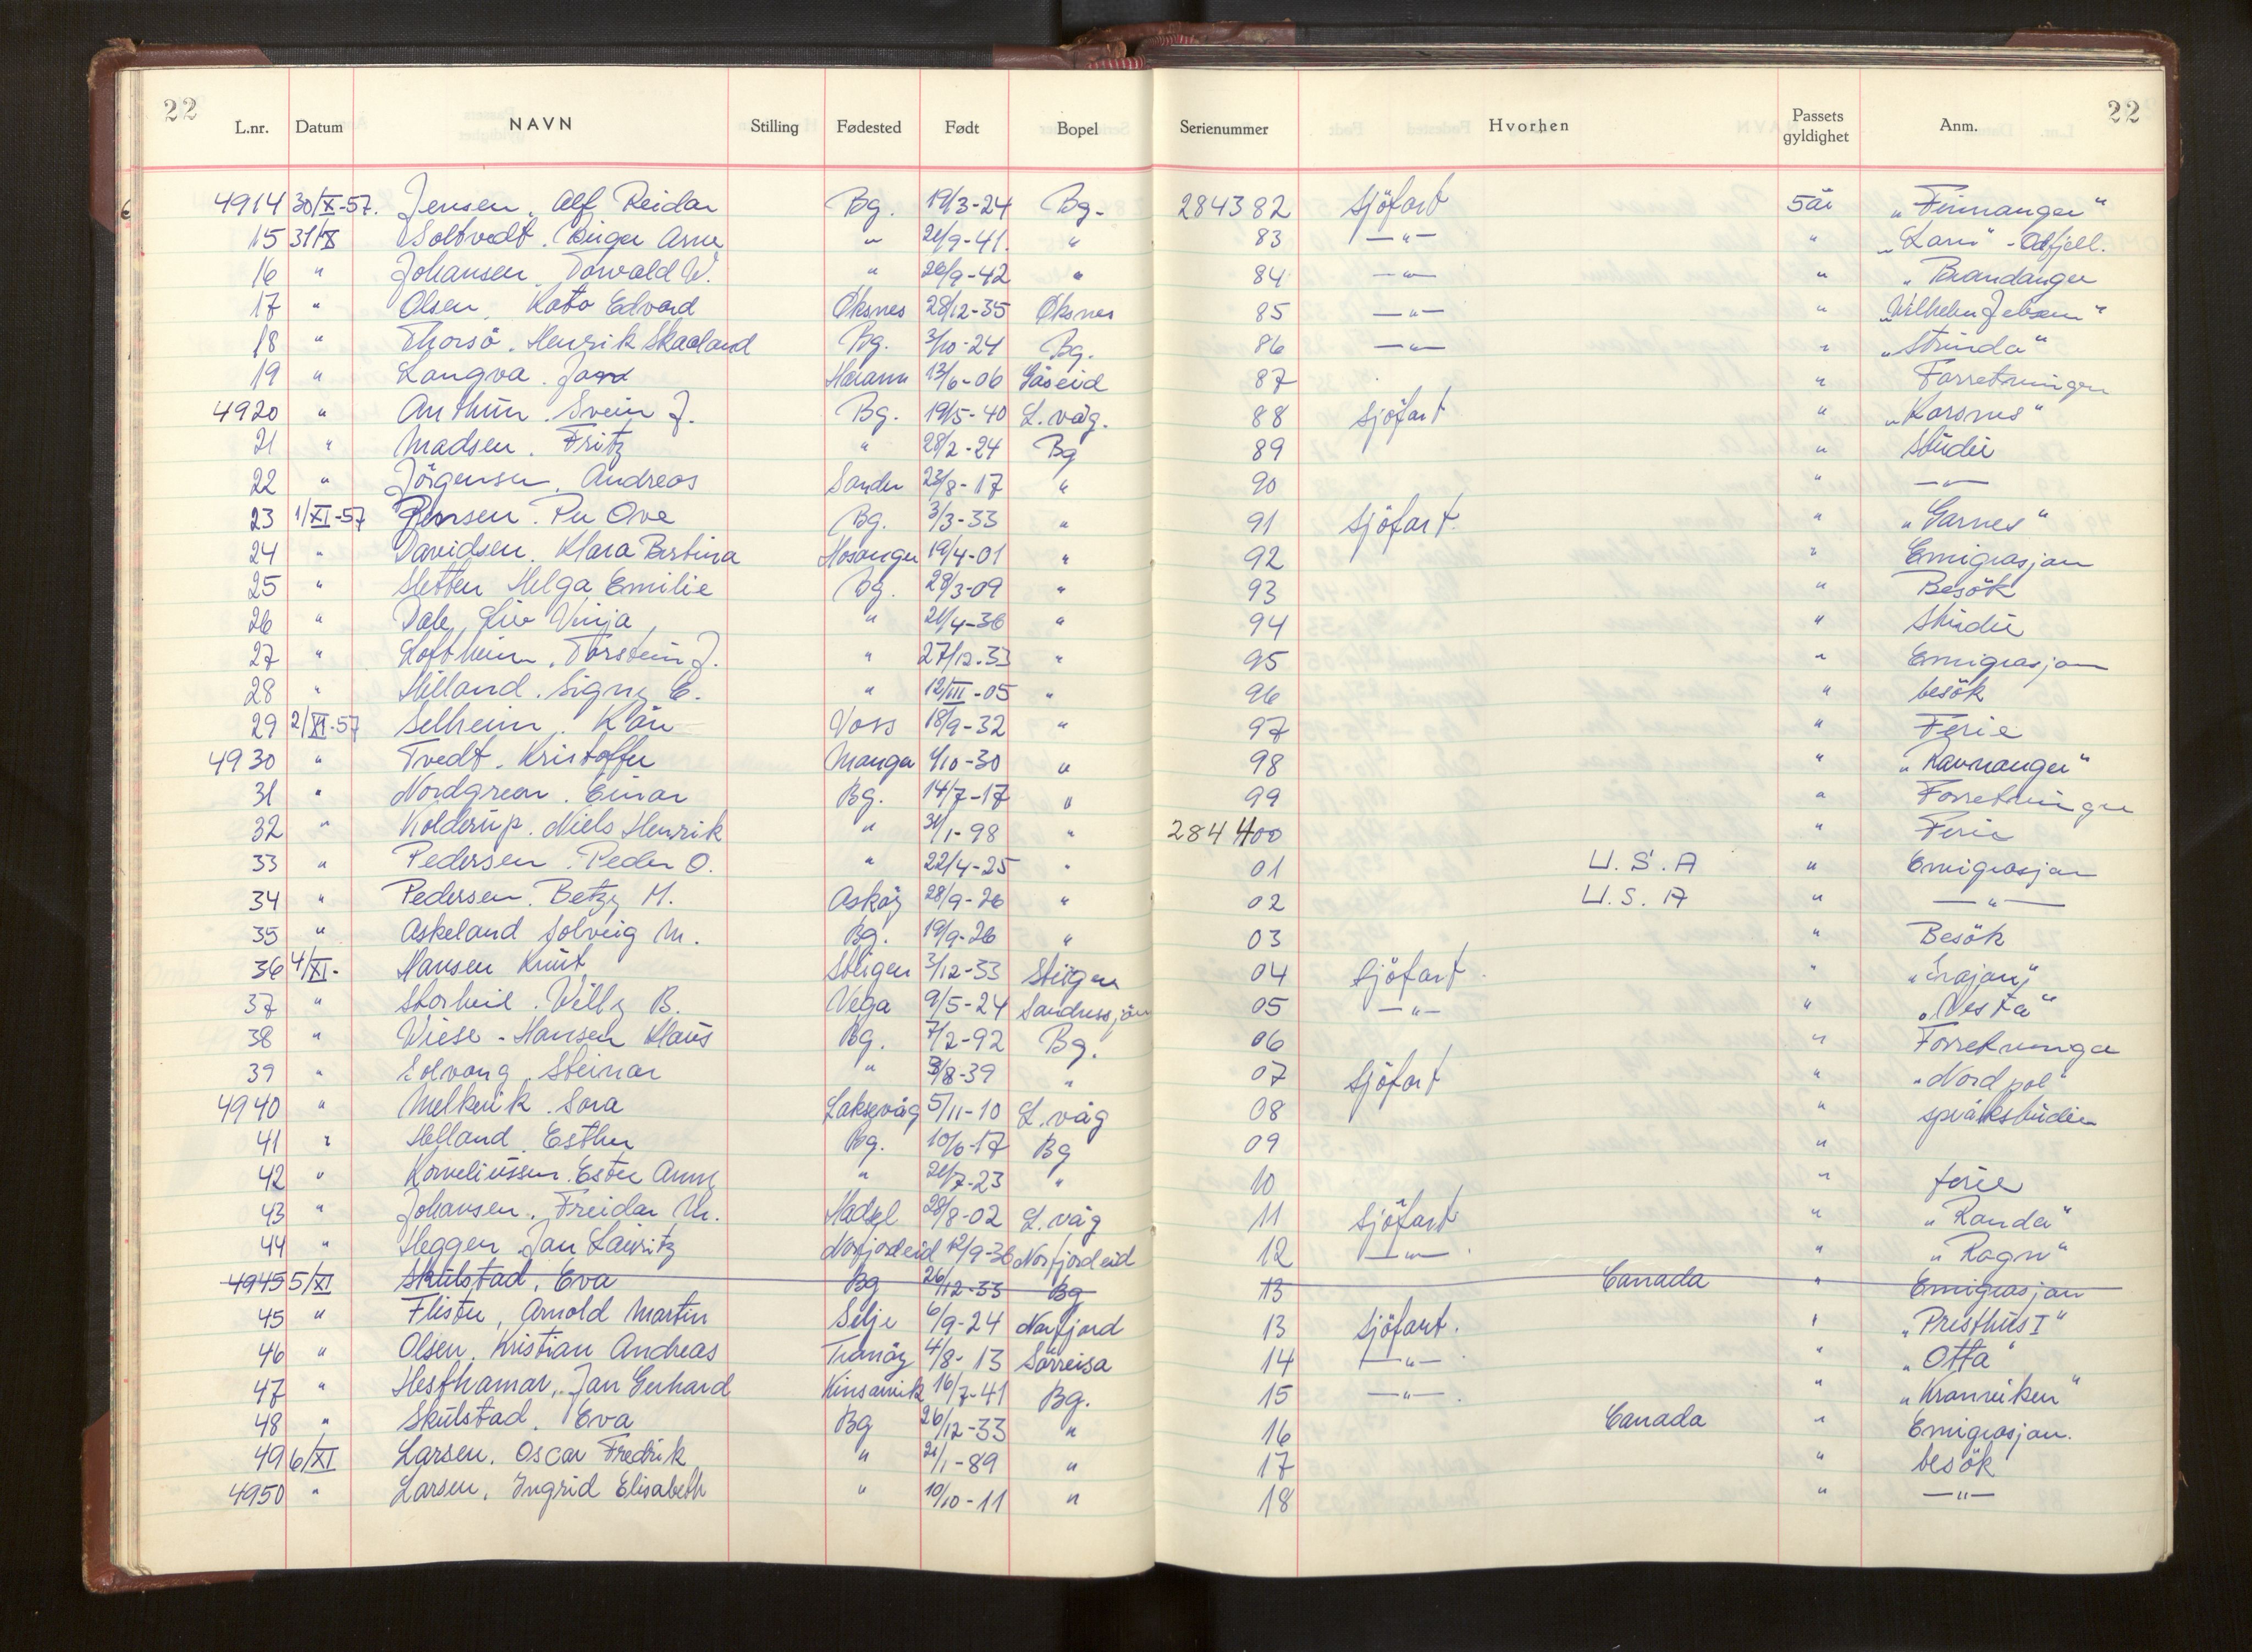 22 22
L.nr. Datum NAVN Stilling Fødested Født Bopel Serienummer Hvorhen Passets gyldighet Anm.
4914 30/X-57. Jensen, Alf Reidar Bg. 19/3-24 Bg. 284382 sjöfart 5 år "Finnanger"
15 31/X Soltvedt. Birger Arne " 21/9-41. " 83 —"— " "Lars" - Odfjell.
16 " Johansen, Torvald W. " 26/9-42 " 84 —"— " "Brandanger
17 " Olsen, Kato Edvard Øksnes 28/12-35 Øksnes 85 —"— " "Wilhelm Jebsen"
18 " Thorsö. Henrik Skaaland Bg. 3/10-24 Bg. 86 —"— " "Strinda"
19 " Langva. Haram 13/6-06 Gåseid 87 " Forretninger
4920 " Anthun. Svein J. Bg. 19/5-40 L.våg. 88 sjöfart " "Korsnes"
21 " Madsen. Fritz " 28/2-24 Bg 89 " studie
22 " Jörgensen, Andreas Sander 23/8-17 " 90 " —"—
23 1/XI-57 Jensen. Per Ove Bg. 3/3-33 " 91 sjöfart. " "Garnes"
24 " Davidsen. Klara Bertina Hosanger 19/4-01 " 92 " Emigrasjon
25 " Sletten Helga Emilie Bg. 28/3-09 " 93 " Besök
26 " Dale, Liv Vinja " 21/4-36 " 94 " Studie
27 " Loftheim. Torstein J. " 27/12-33 " 95 " Emigrasjon
28 " Hilland. Signy E. " 12/III-05 " 96 " besök
29 2/XI-57 Selheim. Kåre Voss 18/9-32 " 97 " Ferie
4930 " Tvedt. Kristoffer Manger 4/10-30 " 98 " "Ravnanger"
31 " Nordgreen. Einar Bg. 14/7-17 " 99 " Forretninger
32 " Kolderup. Niels Henrik " 31/1-98 " 284400 " Ferie
33 " Pedersen. Peder O. " 22/4-25 " 01 U.S.A " Emigrasjon
34 " Pedersen. Betzy M. Asköy 28/9-26 " 02 U.S.A " —"—
35 " Askeland Solveig M. Bg. 19/9-26 " 03 " Besök
36 4/XI- Hansen Knut Stigen 3/12-33 Stigen 04 sjöfart. " "Trajan"
37 " Storheil. Willy B. Vega 9/5-24 Sandnessjöen 05 —"— " "Vesta"
38 " Wiese-Hansen Klaus Bg. 7/2-92 Bg. 06 " Forretninger
39 " Solvang. Steinar " 3/8-39 " 07 sjöfart " "Nordpol"
4940 " Melkevik. Sara Laksevåg 5/11-10 L.våg 08 " språkstudier
41 " Helland. Esther Bg. 10/6-17 Bg 09 "
42 " Korneliussen. Ester Anny " 21/7-23 " 10 " ferie
43 " Johansen. Freidar M. Hadsel 28/8-02 L.våg 11 sjöfart " "Randa"
44 " Heggen. Jan Lauritz Norfjordeid 12/9-36 Norfjordeid 12 —"— . " "Ragn"
4945 5/XI Skulstad. Eva Bg 26/12-33 Bg 13 Canada " Emigrasjon
45 " Flister, Arnold Martin Selje 6/9-24 Norfjord 13 sjöfart. " "Presthus I"
46 " Olsen. Kristian Andreas Tranöy 4/8-13 Sörreisa 14 —"— . " "Otta"
47 " Hesthamar. Jan Gerhard Kinsarvik 16/7-41 Bg. 15 —"— . " "Kronviken"
48 " Skulstad. Eva Bg 26/12-33 " 16 Canada " Emigrasjon.
49 6/XI Larsen. Oscar Fredrik " 21/1-89 " 17 " besök
4950 " Larsen. Ingrid Elisabeth " 10/10-11 " 18 " —"—